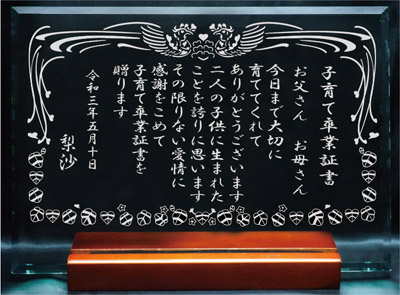 子育て卒業証書
お父さん　お母さん
今日まで大切に
育ててくれて
ありがとうございます
二人の子供に生まれた
ことを誇りに思います
その限りない愛情に
感謝をこめて
子育て卒業証書を
贈ります
令和三年五月十日
梨沙